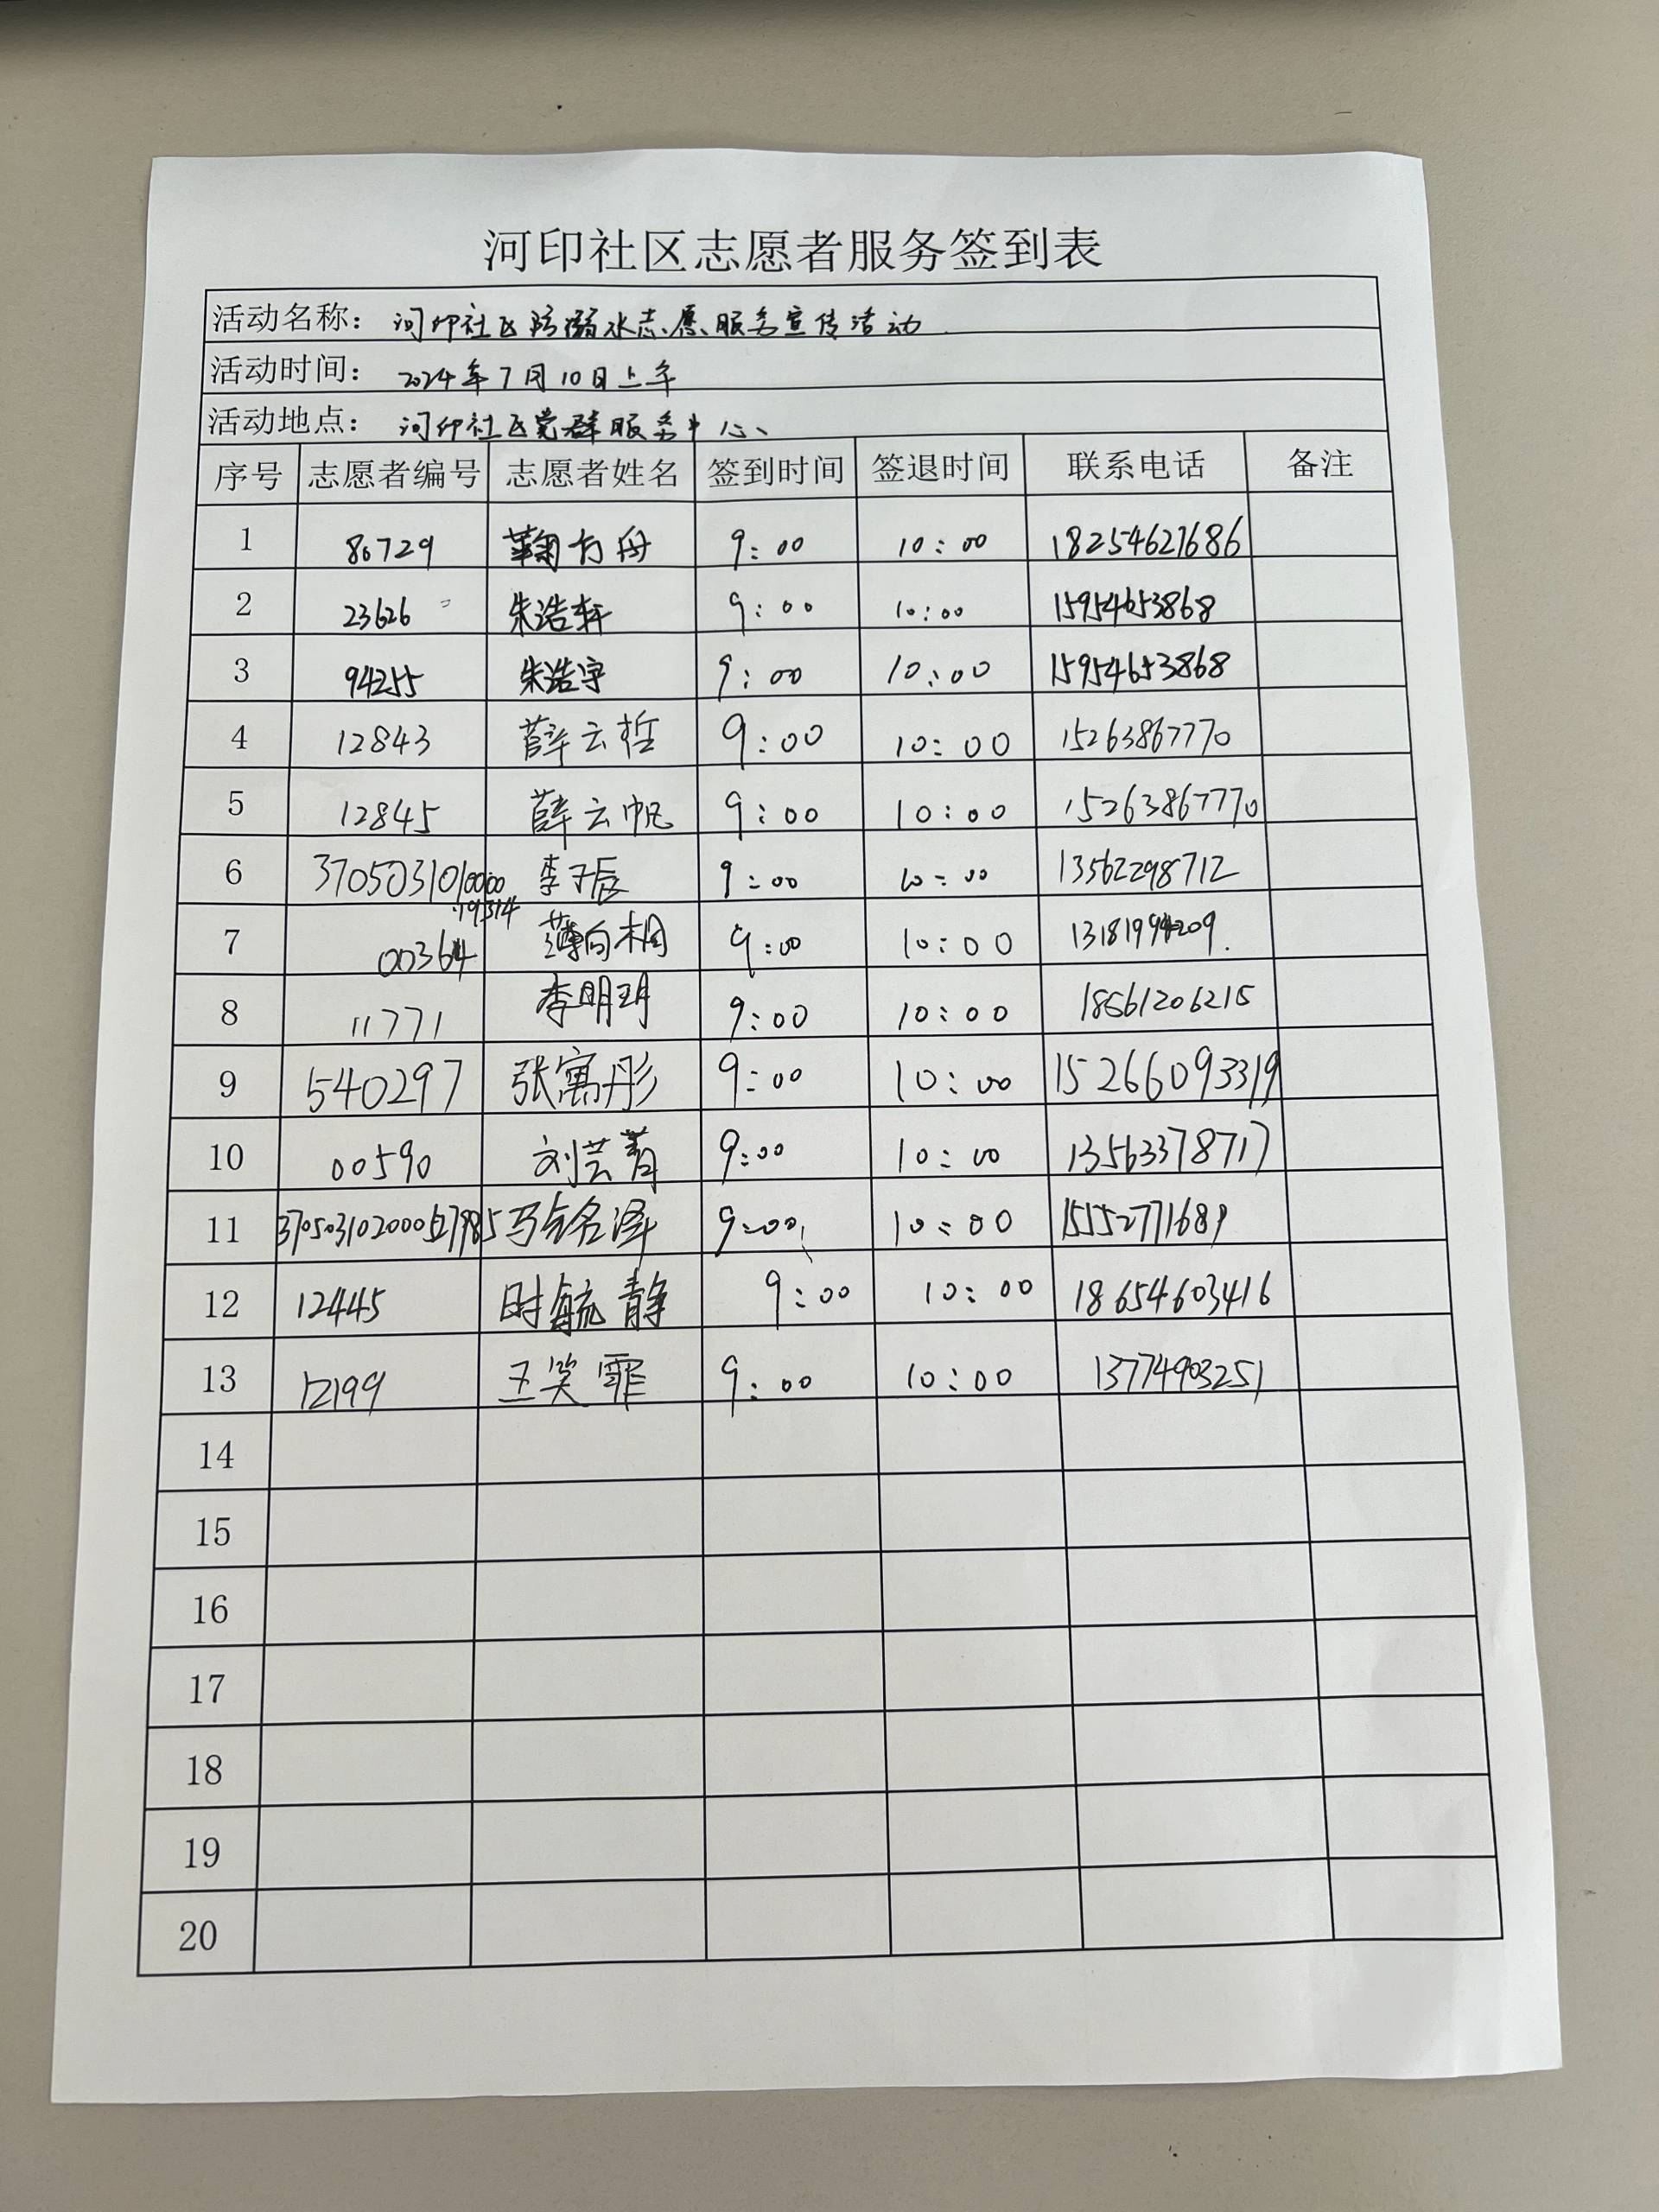 河印社区志愿者服务签到表
活动名称： 河印社区防溺水志愿服务宣传活动
活动时间： 2024年7月10日上午
活动地点： 河印社区党群服务中心
序号 志愿者编号 志愿者姓名 签到时间 签退时间 联系电话 备注
1 80729 鞠方舟 9:00 10:00 18254627686
2 23626 朱浩轩 9:00 10:00 15954653868
3 94255 朱浩宇 9:00 10:00 15954653868
4 12843 薛云哲 9:00 10:00 15263867770
5 12845 薛云帆 9:00 10:00 15263867770
6 李子辰 9:00 10:00 13562298712
19314
7 00364 薄向桐 9:00 10:00
8 11771 李明玥 9:00 10:00 18561206215
9 540297 张寓彤 9:00 10:00 15266093319
10 00590 刘芸菁 9:00 10:00 13563378717
11 马铭泽 9:00 10:00 15552771689
12 12445 时毓静 9:00 10:00 18654603416
13 12199 王笑霏 9:00 10:00 13774903251
14
15
16
17
18
19
20